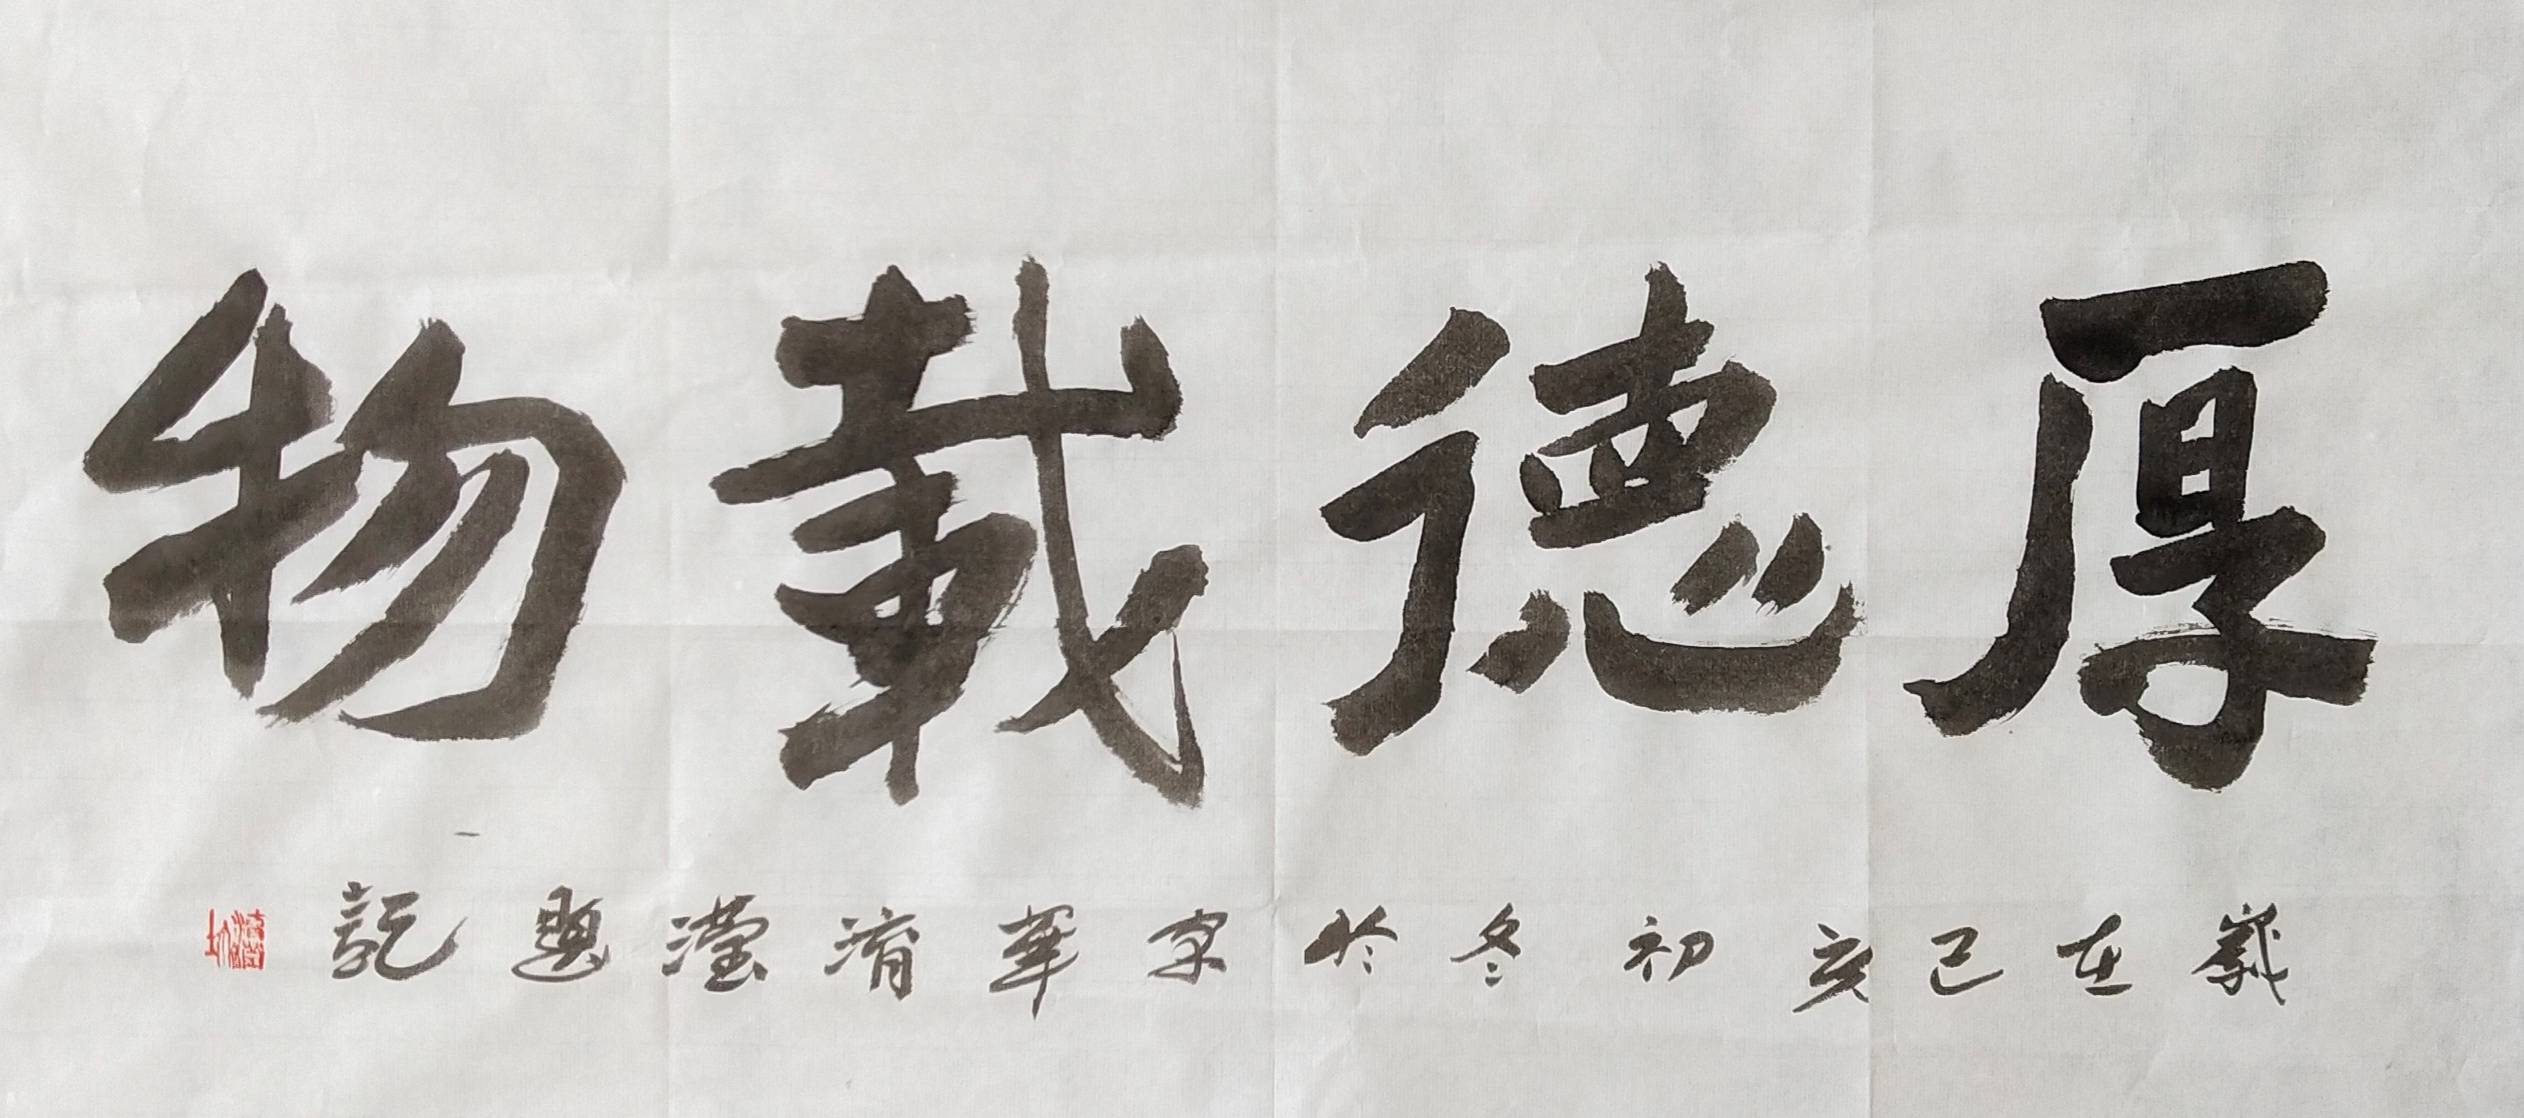 厚德載物
歲在己亥初冬於京華淯瀅題記